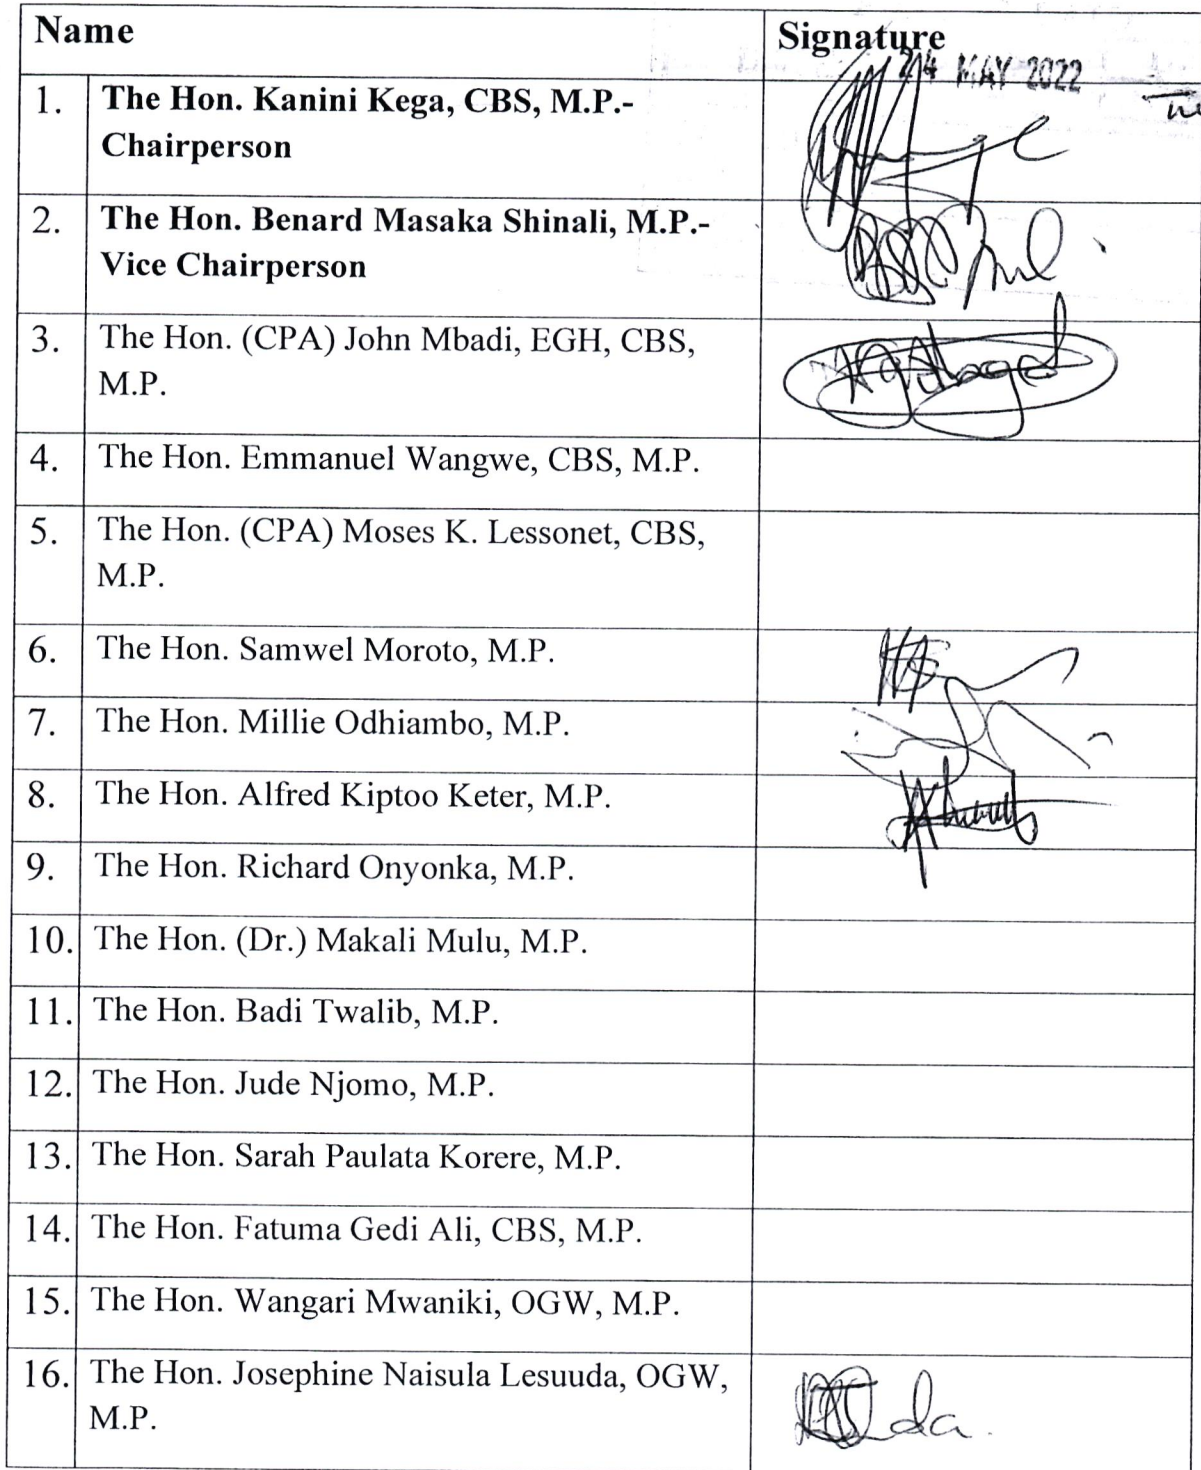 Name Signature
24 MAY 2022
1. The Hon. Kanini Kega, CBS, M.P.-
Chairperson
2. The Hon. Benard Masaka Shinali, M.P.-
Vice Chairperson
3. The Hon. (CPA) John Mbadi, EGH, CBS,
M.P.
4. The Hon. Emmanuel Wangwe, CBS, M.P.
5. The Hon. (CPA) Moses K. Lessonet, CBS,
M.P.
6. The Hon. Samwel Moroto, M.P.
7. The Hon. Millie Odhiambo, M.P.
8. The Hon. Alfred Kiptoo Keter, M.P.
9. The Hon. Richard Onyonka, M.P.
10. The Hon. (Dr.) Makali Mulu, M.P.
11. The Hon. Badi Twalib, M.P.
12. The Hon. Jude Njomo, M.P.
13. The Hon. Sarah Paulata Korere, M.P.
14. The Hon. Fatuma Gedi Ali, CBS, M.P.
15. The Hon. Wangari Mwaniki, OGW, M.P.
16. The Hon. Josephine Naisula Lesuuda, OGW,
M.P.